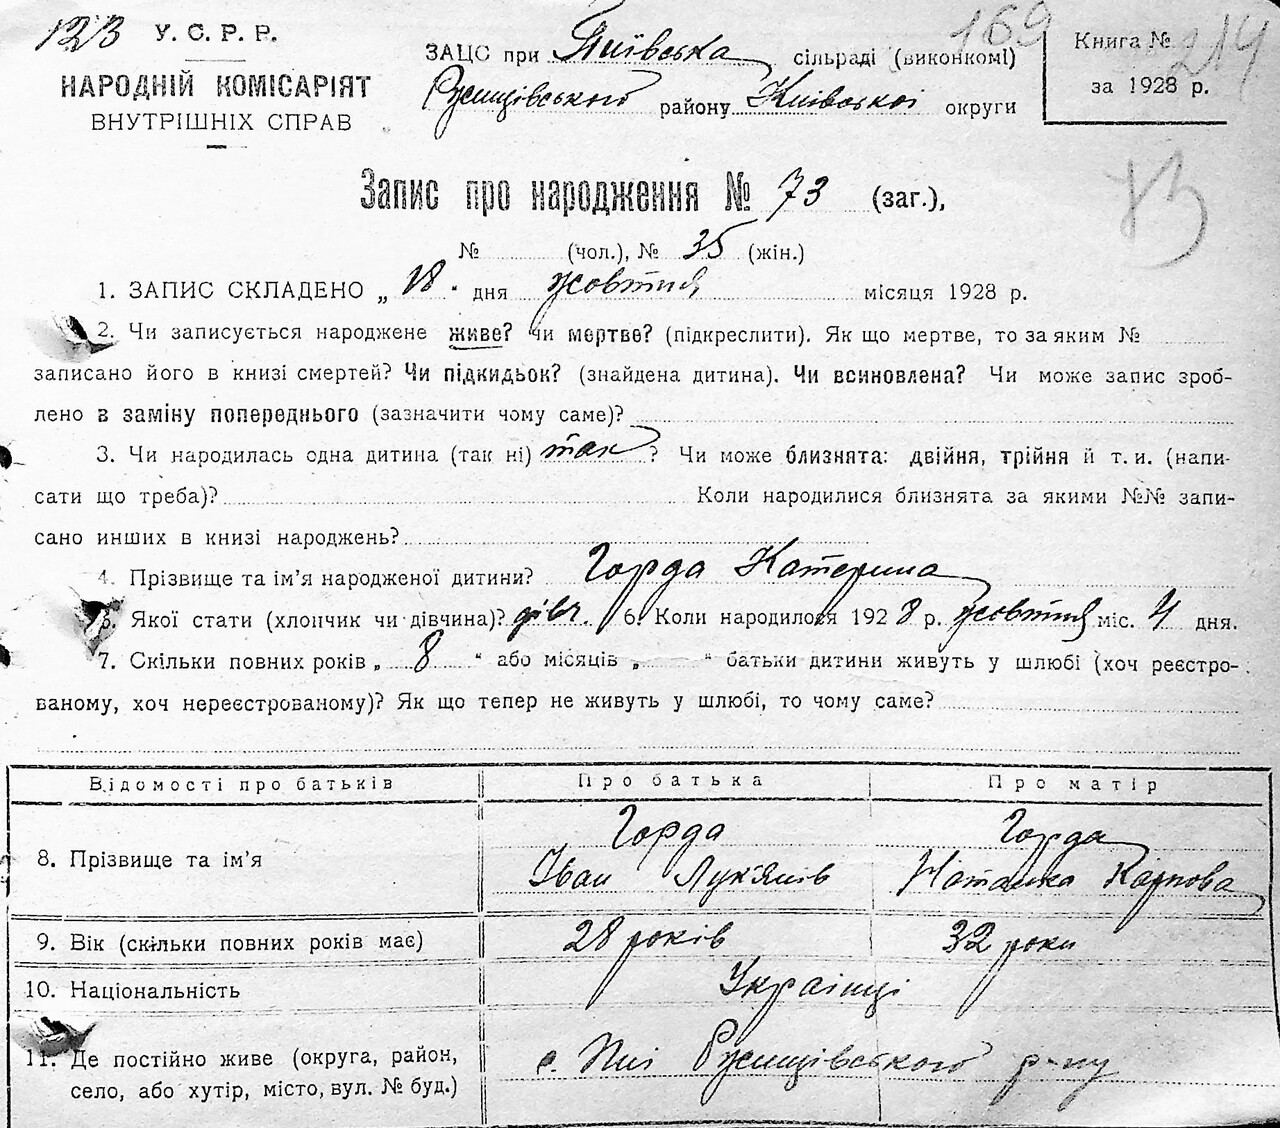 123 У. С. Р. Р.
НАРОДНІЙ КОМІСАРІЯТ
ВНУТРІШНІХ СПРАВ
ЗАЦС при Пиївська сільраді (виконкомі)
Ржищівського району Київської округи
169
Книга № 214
за 1928 р.
73
Запис про народження № 73 (заг.),
№ (чол.), № 35 (жін.)
1. ЗАПИС СКЛАДЕНО „ 18 " дня жовтня місяця 1928 р.
2. Чи записується народжене живе? чи мертве? (підкреслити). Як що мертве, то за яким №
записано його в книзі смертей? Чи підкидьок? (знайдена дитина). Чи всиновлена? Чи може запис зроб-
лено в заміну попереднього (зазначити чому саме)?
3. Чи народилась одна дитина (так ні) так ? Чи може близнята: двійня, трійня й т. и. (напи-
сати що треба)? Коли народилися близнята за якими №№ запи-
сано инших в книзі народжень?
4. Прізвище та ім'я народженої дитини? Горда Катерина
5. Якої стати (хлопчик чи дівчина)? дівч. 6. Коли народилося 1928 р. жовтня міс. 4 дня.
7. Скільки повних років „ 8 " або місяців „ " батьки дитини живуть у шлюбі (хоч реєстро-
ваному, хоч нереєстрованому)? Як що тепер не живуть у шлюбі, то чому саме?
Відомості про батьків Про батька Про матір
8. Прізвище та ім'я Горда Іван Лук'янів Горда Наталка Карпова
9. Вік (скільки повних років має) 28 років 32 роки
10. Національність Українці
11. Де постійно живе (округа, район, с. Пиї Ржищівського р-ну
село, або хутір, місто, вул. № буд.)